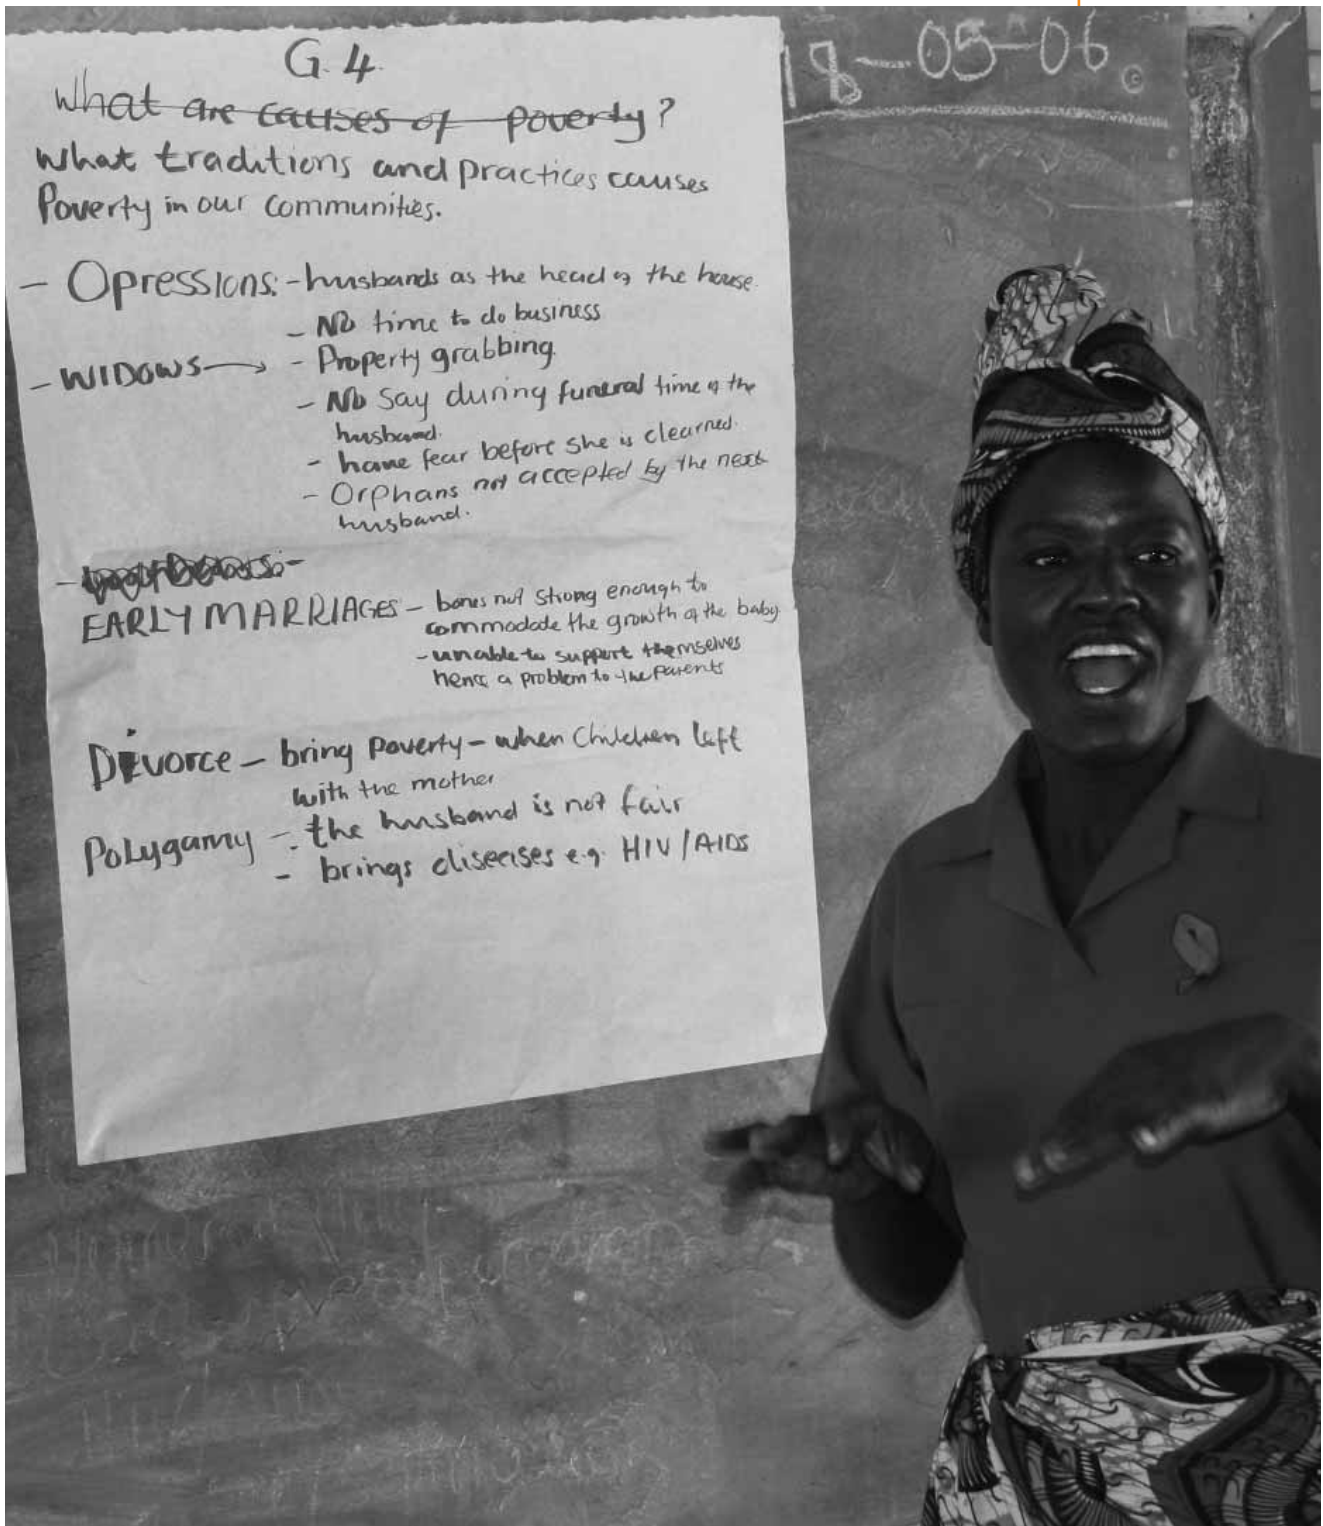 G. 4.
What are causes of poverty?
What traditions and practices causes
Poverty in our communities.
- Opressions: - husbands as the head of the house.
- No time to do business
- WIDOWS → - Property grabbing.
- No say during funeral time of the
husband.
- have fear before she is clearned.
- Orphans not accepted by the next
husband.
EARLY MARRIAGES - bones not strong enough to
commodate the growth of the baby
- unable to support themselves
hence a problem to the parents
Divorce - bring poverty - when Children left
with the mother
Polygamy - the husband is not fair
- brings diseases e.g. HIV/AIDS
18-05-06.